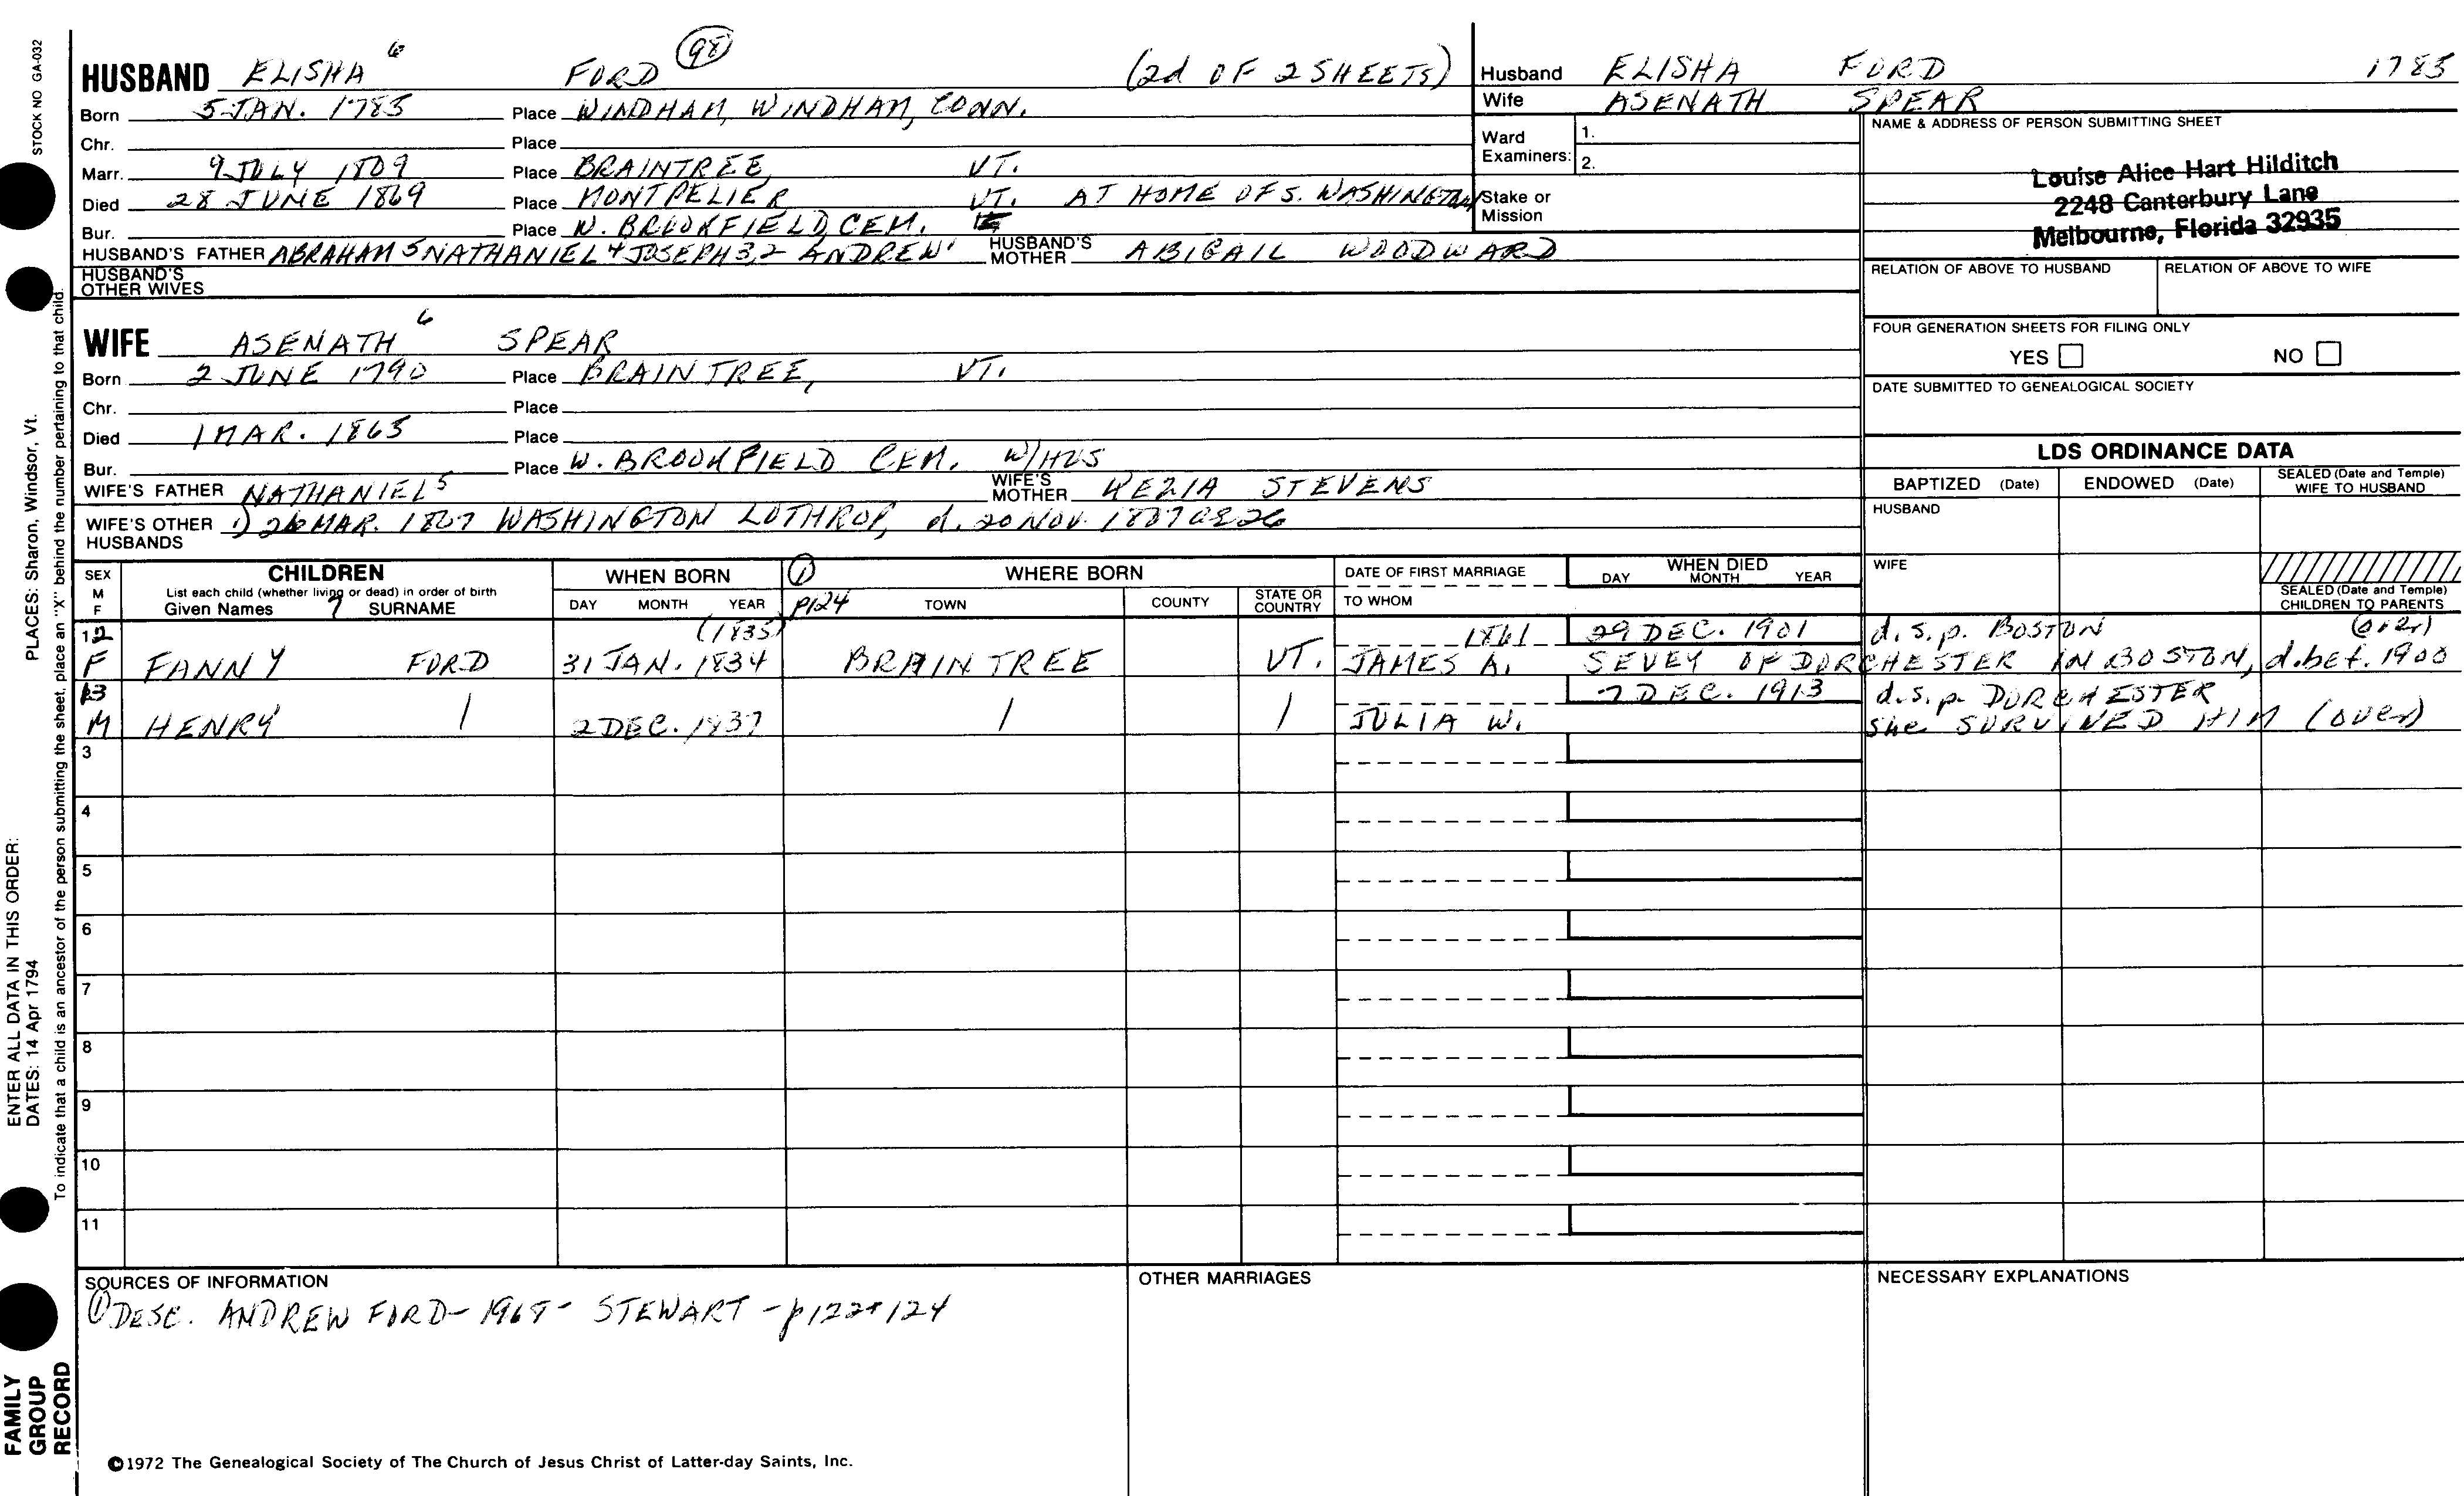 HUSBAND ELISHA 6 FORD 98 (2d OF 2 SHEETS)
Born 5 JAN. 1785 Place WINDHAM, WINDHAM, CONN.
Chr. Place
Marr. 9 JULY 1809 Place BRAINTREE, VT.
Died 28 JUNE 1869 Place MONTPELIER VT. AT HOME OF S. WASHINGTON
Bur. Place W. BROOKFIELD CEM.
HUSBAND'S FATHER ABRAHAM 5 NATHANIEL 4 JOSEPH 3,2 ANDREW 1 HUSBAND'S MOTHER ABIGAIL WOODWARD
HUSBAND'S OTHER WIVES
WIFE ASENATH 6 SPEAR
Born 2 JUNE 1790 Place BRAINTREE, VT.
Chr. Place
Died 1 MAR. 1865 Place
Bur. Place W. BROOKFIELD CEM. W/HUS
WIFE'S FATHER NATHANIEL 5 WIFE'S MOTHER KEZIA STEVENS
WIFE'S OTHER HUSBANDS 1) 26 MAR. 1807 WASHINGTON LOTHROP, d. 20 NOV. 1807 ae 26
Husband ELISHA FORD 1785
Wife ASENATH SPEAR
Ward Examiners: 1.
2.
Stake or Mission
NAME & ADDRESS OF PERSON SUBMITTING SHEET
Louise Alice Hart Hilditch
2248 Canterbury Lane
Melbourne, Florida 32935
RELATION OF ABOVE TO HUSBAND RELATION OF ABOVE TO WIFE
FOUR GENERATION SHEETS FOR FILING ONLY
YES NO
DATE SUBMITTED TO GENEALOGICAL SOCIETY
LDS ORDINANCE DATA
BAPTIZED (Date) ENDOWED (Date) SEALED (Date and Temple) WIFE TO HUSBAND
HUSBAND
WIFE
SEALED (Date and Temple) CHILDREN TO PARENTS
SEX M F
CHILDREN
List each child (whether living or dead) in order of birth
Given Names 7 SURNAME
WHEN BORN
DAY MONTH YEAR
1 p124
WHERE BORN
TOWN COUNTY STATE OR COUNTRY
DATE OF FIRST MARRIAGE
TO WHOM
WHEN DIED
DAY MONTH YEAR
12 (1835) 1861 29 DEC. 1901 d.s.p. BOSTON (over)
F FANNY FORD 31 JAN. 1834 BRAINTREE VT. JAMES A. SEVEY OF DORCHESTER IN BOSTON, d. bef. 1900
13 7 DEC. 1913 d.s.p. DORCHESTER
M HENRY 2 DEC. 1837 JULIA W. She SURVIVED HIM (over)
3
4
5
6
7
8
9
10
11
SOURCES OF INFORMATION
1 DESC. ANDREW FORD - 1968 - STEWART - p 122+124
OTHER MARRIAGES
NECESSARY EXPLANATIONS
©1972 The Genealogical Society of The Church of Jesus Christ of Latter-day Saints, Inc.
STOCK NO GA-032
PLACES: Sharon, Windsor, Vt.
ENTER ALL DATA IN THIS ORDER:
DATES: 14 Apr 1794
To indicate that a child is an ancestor of the person submitting the sheet, place an "X" behind the number pertaining to that child.
FAMILY
GROUP
RECORD